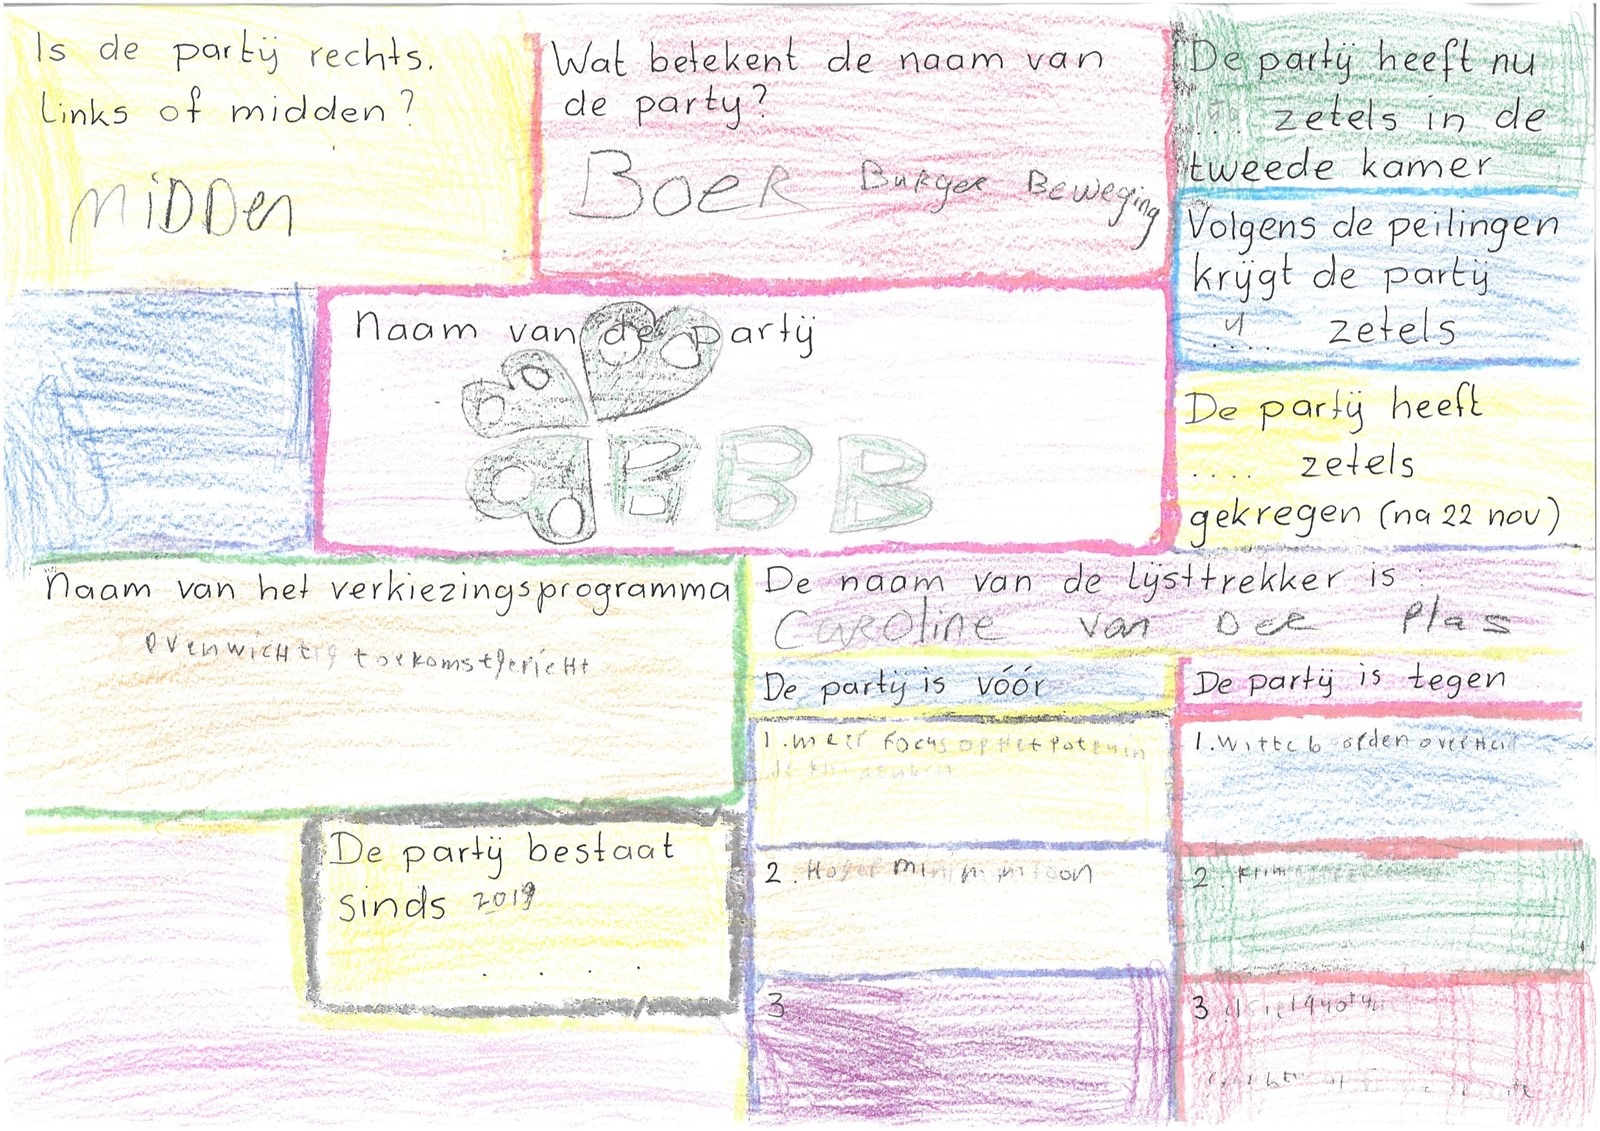 Is de partij rechts.
links of midden?
MiDDen
Wat betekent de naam van
de party?
BoeR Burger Beweging
De partij heeft nu
.... zetels in de
tweede kamer
Volgens de peilingen
krijgt de partij
.... zetels
Naam van de partij
BBB
De partij heeft
.... zetels
gekregen (na 22 nov)
Naam van het verkiezingsprogramma
evenwichtig toekomstgericht
De naam van de lijsttrekker is:
Caroline van Der Plas
De partij is vóór
1. meer focus op Het
2. Hoger minimumloon
3
De partij is tegen
1. witte boorden overheid
2.
3.
De partij bestaat
sinds 2019